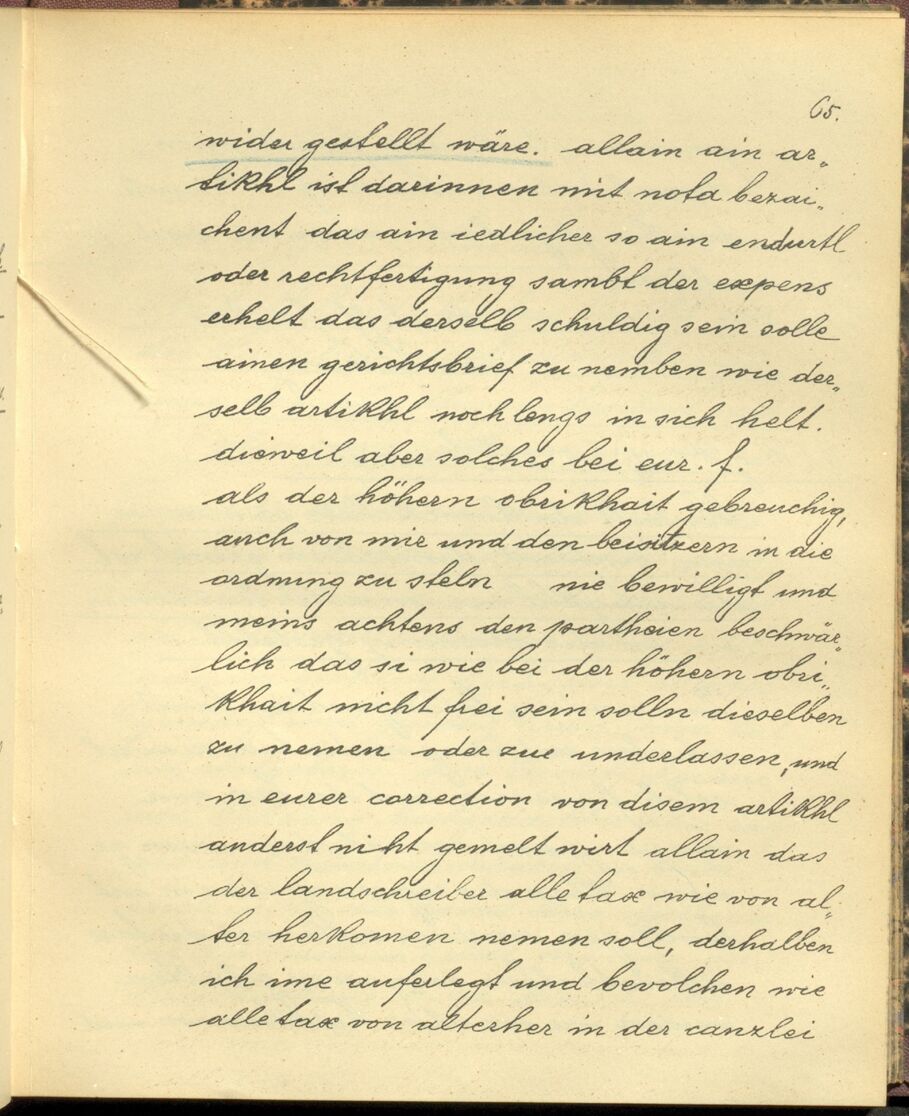 65.
wider gestellt wäre. allain ain ar„
tikhl ist darinnen mit nota bezai„
chent das ain iedlicher so ain endurtl
oder rechtfertigung sambt der expens
erhelt das derselb schuldig sein solle
ainen gerichtsbrief zu nemben wie der„
selb artikhl noch lengs in sich helt.
dieweil aber solches bei eur. f.
als der höhern obrikhait gebreuchig,
auch von mir und den beisitzern in die
ordnung zu steln nie bewilligt und
meins achtens den partheien beschwär„
lich das si wie bei der höhern obri„
khait nicht frei sein solln dieselben
zu nemen oder zue underlassen, und
in eurer correction von disem artikhl
anderst nicht gemelt wirt allain das
der landschreiber alle tax wie von al„
ter herkomen nemen soll, derhalben
ich ime auferlegt und bevolchen wie
alle tax von alterher in der canzlei